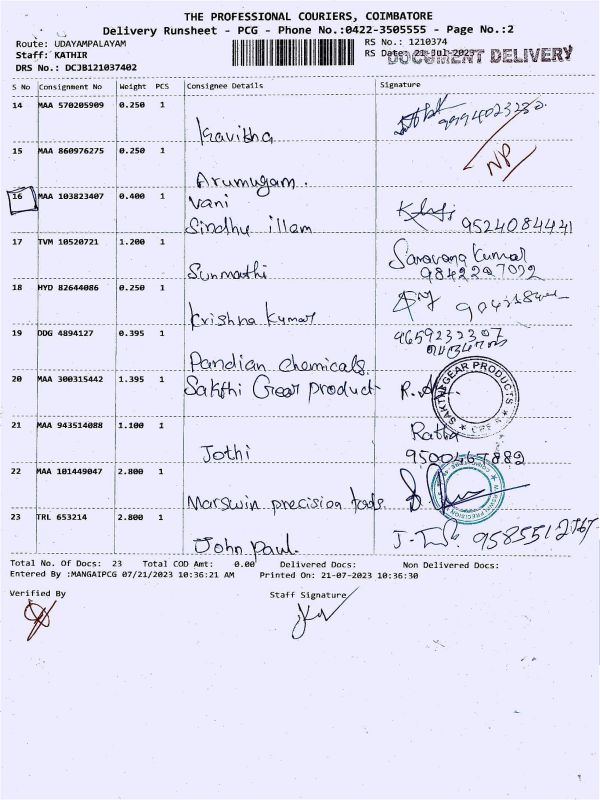 THE PROFESSIONAL COURIERS, COIMBATORE
Delivery Runsheet - PCG - Phone No.:0422-3505555 - Page No.:2
Route: UDAYAMPALAYAM RS No.: 1210374
Staff: KATHIR RS Date: 21-Jul-2023 DOCUMENT DELIVERY
DRS No.: DCJB121037402
S No Consignment No Weight PCS Consignee Details Signature
14 MAA 570205909 0.250 1
Kavitha
15 MAA 860976275 0.250 1
NP
Arumugam.
16 MAA 103823407 0.400 1 Vani
Sindhu illam 9524084441
17 TVM 10520721 1.200 1 Saravana Kumar
Sunmathi 9842227032
18 HYD 82644086 0.250 1
Krishna Kumar
19 DDG 4894127 0.395 1 9659232307
Pandian chemicals
20 MAA 300315442 1.395 1 Sakthi Gear product
SAKTHI GEAR PRODUCTS
21 MAA 943514088 1.100 1 Ratha
Jothi 9500467882
22 MAA 101449047 2.800 1
Marswin precision tools
23 TRL 653214 2.800 1
John paul.
Total No. Of Docs: 23 Total COD Amt: 0.00 Delivered Docs: Non Delivered Docs:
Entered By :MANGAIPCG 07/21/2023 10:36:21 AM Printed On: 21-07-2023 10:36:30
Verified By Staff Signature